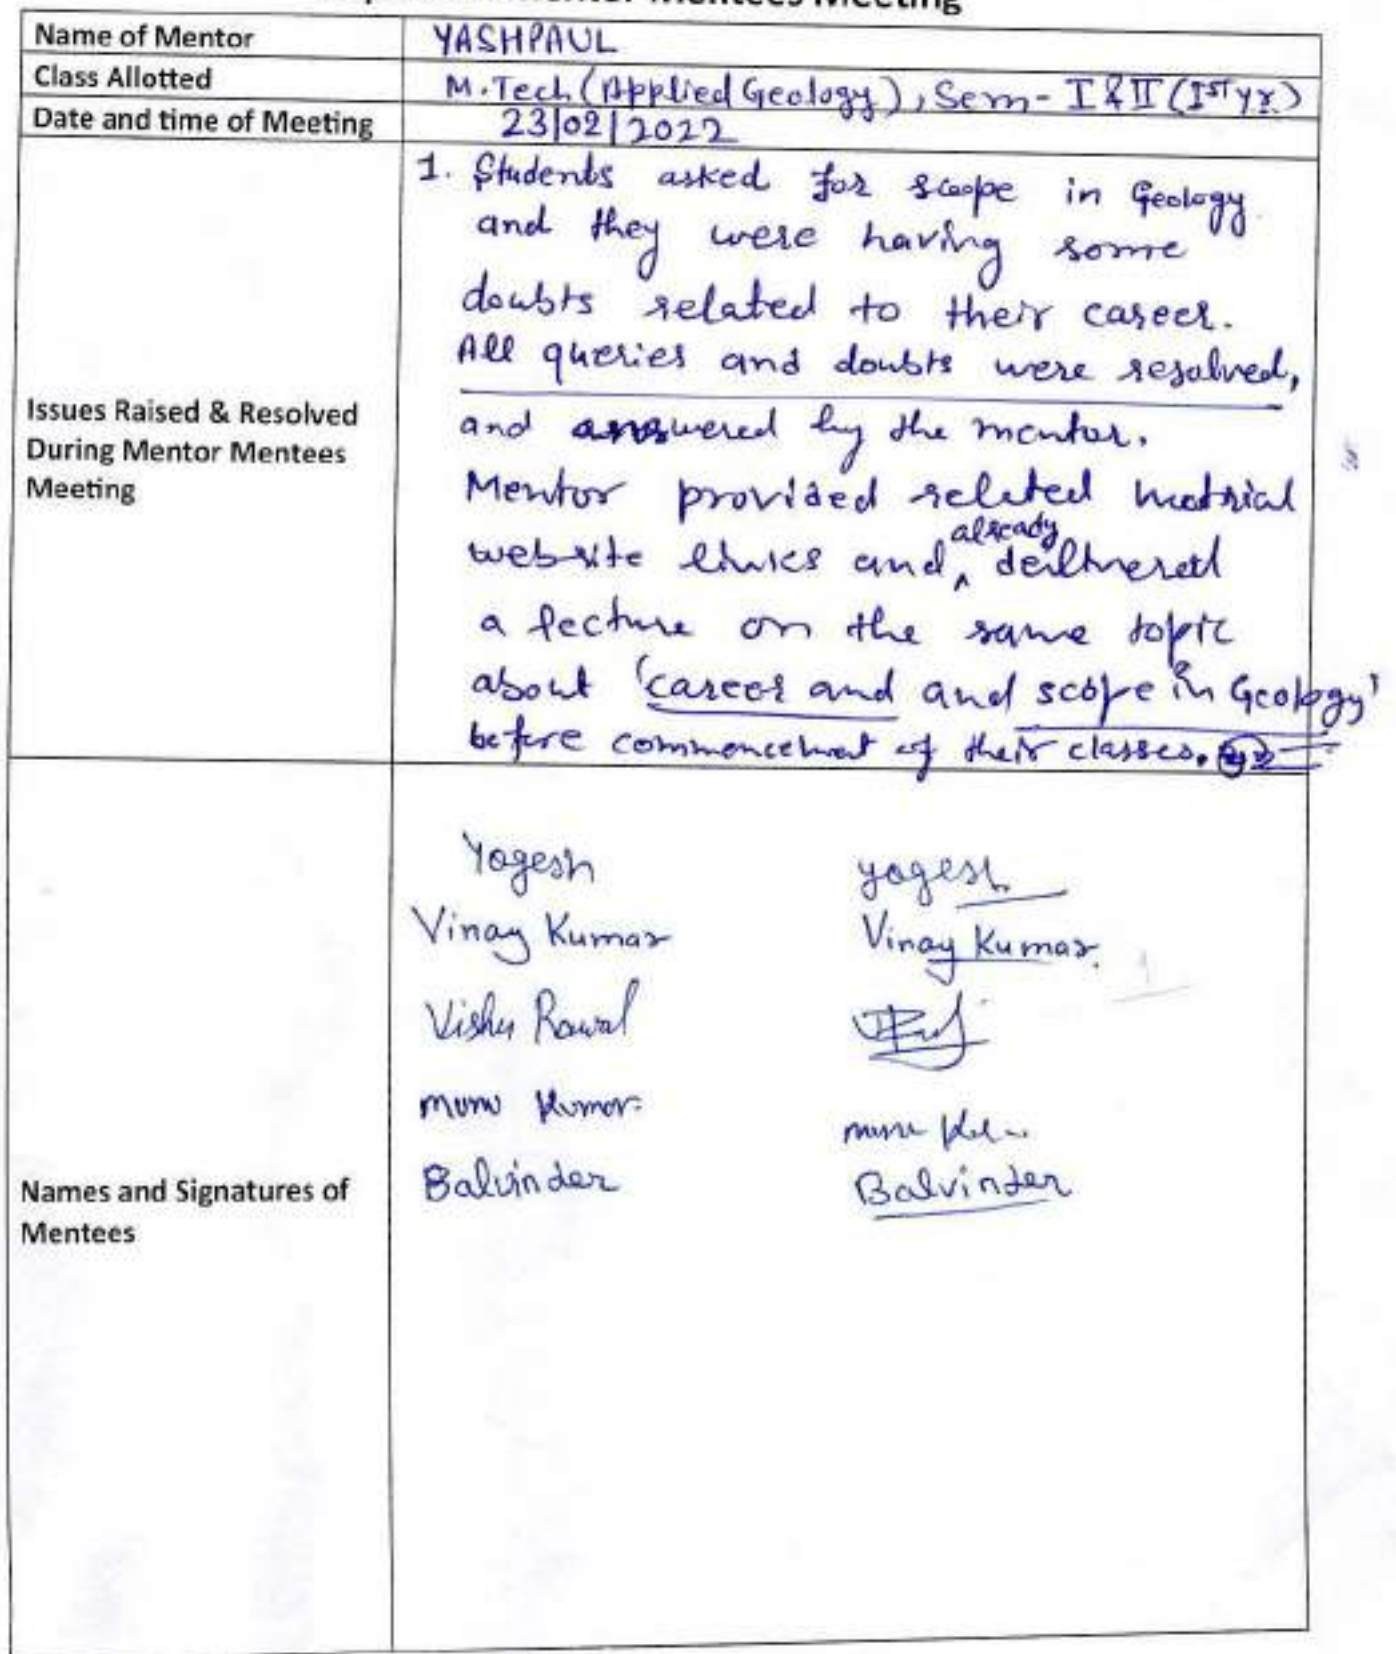 Mentor Mentees Meeting
Name of Mentor YASHPAUL
Class Allotted M.Tech (Applied Geology), Sem- I & II (Ist yr.)
Date and time of Meeting 23/02/2022
Issues Raised & Resolved
During Mentor Mentees
Meeting
1. Students asked for scope in Geology
and they were having some
doubts related to their career.
All queries and doubts were resolved,
and answered by the mentor.
Mentor provided related matrial
website links and already
delivered
a lecture on the same topic
about 'career and and scope in Geology'
before commencement of their classes.
Names and Signatures of
Mentees
Yogesh yogesh
Vinay Kumar Vinay Kumar.
Vishu Rawal
Kumar
Balvinder Balvinder